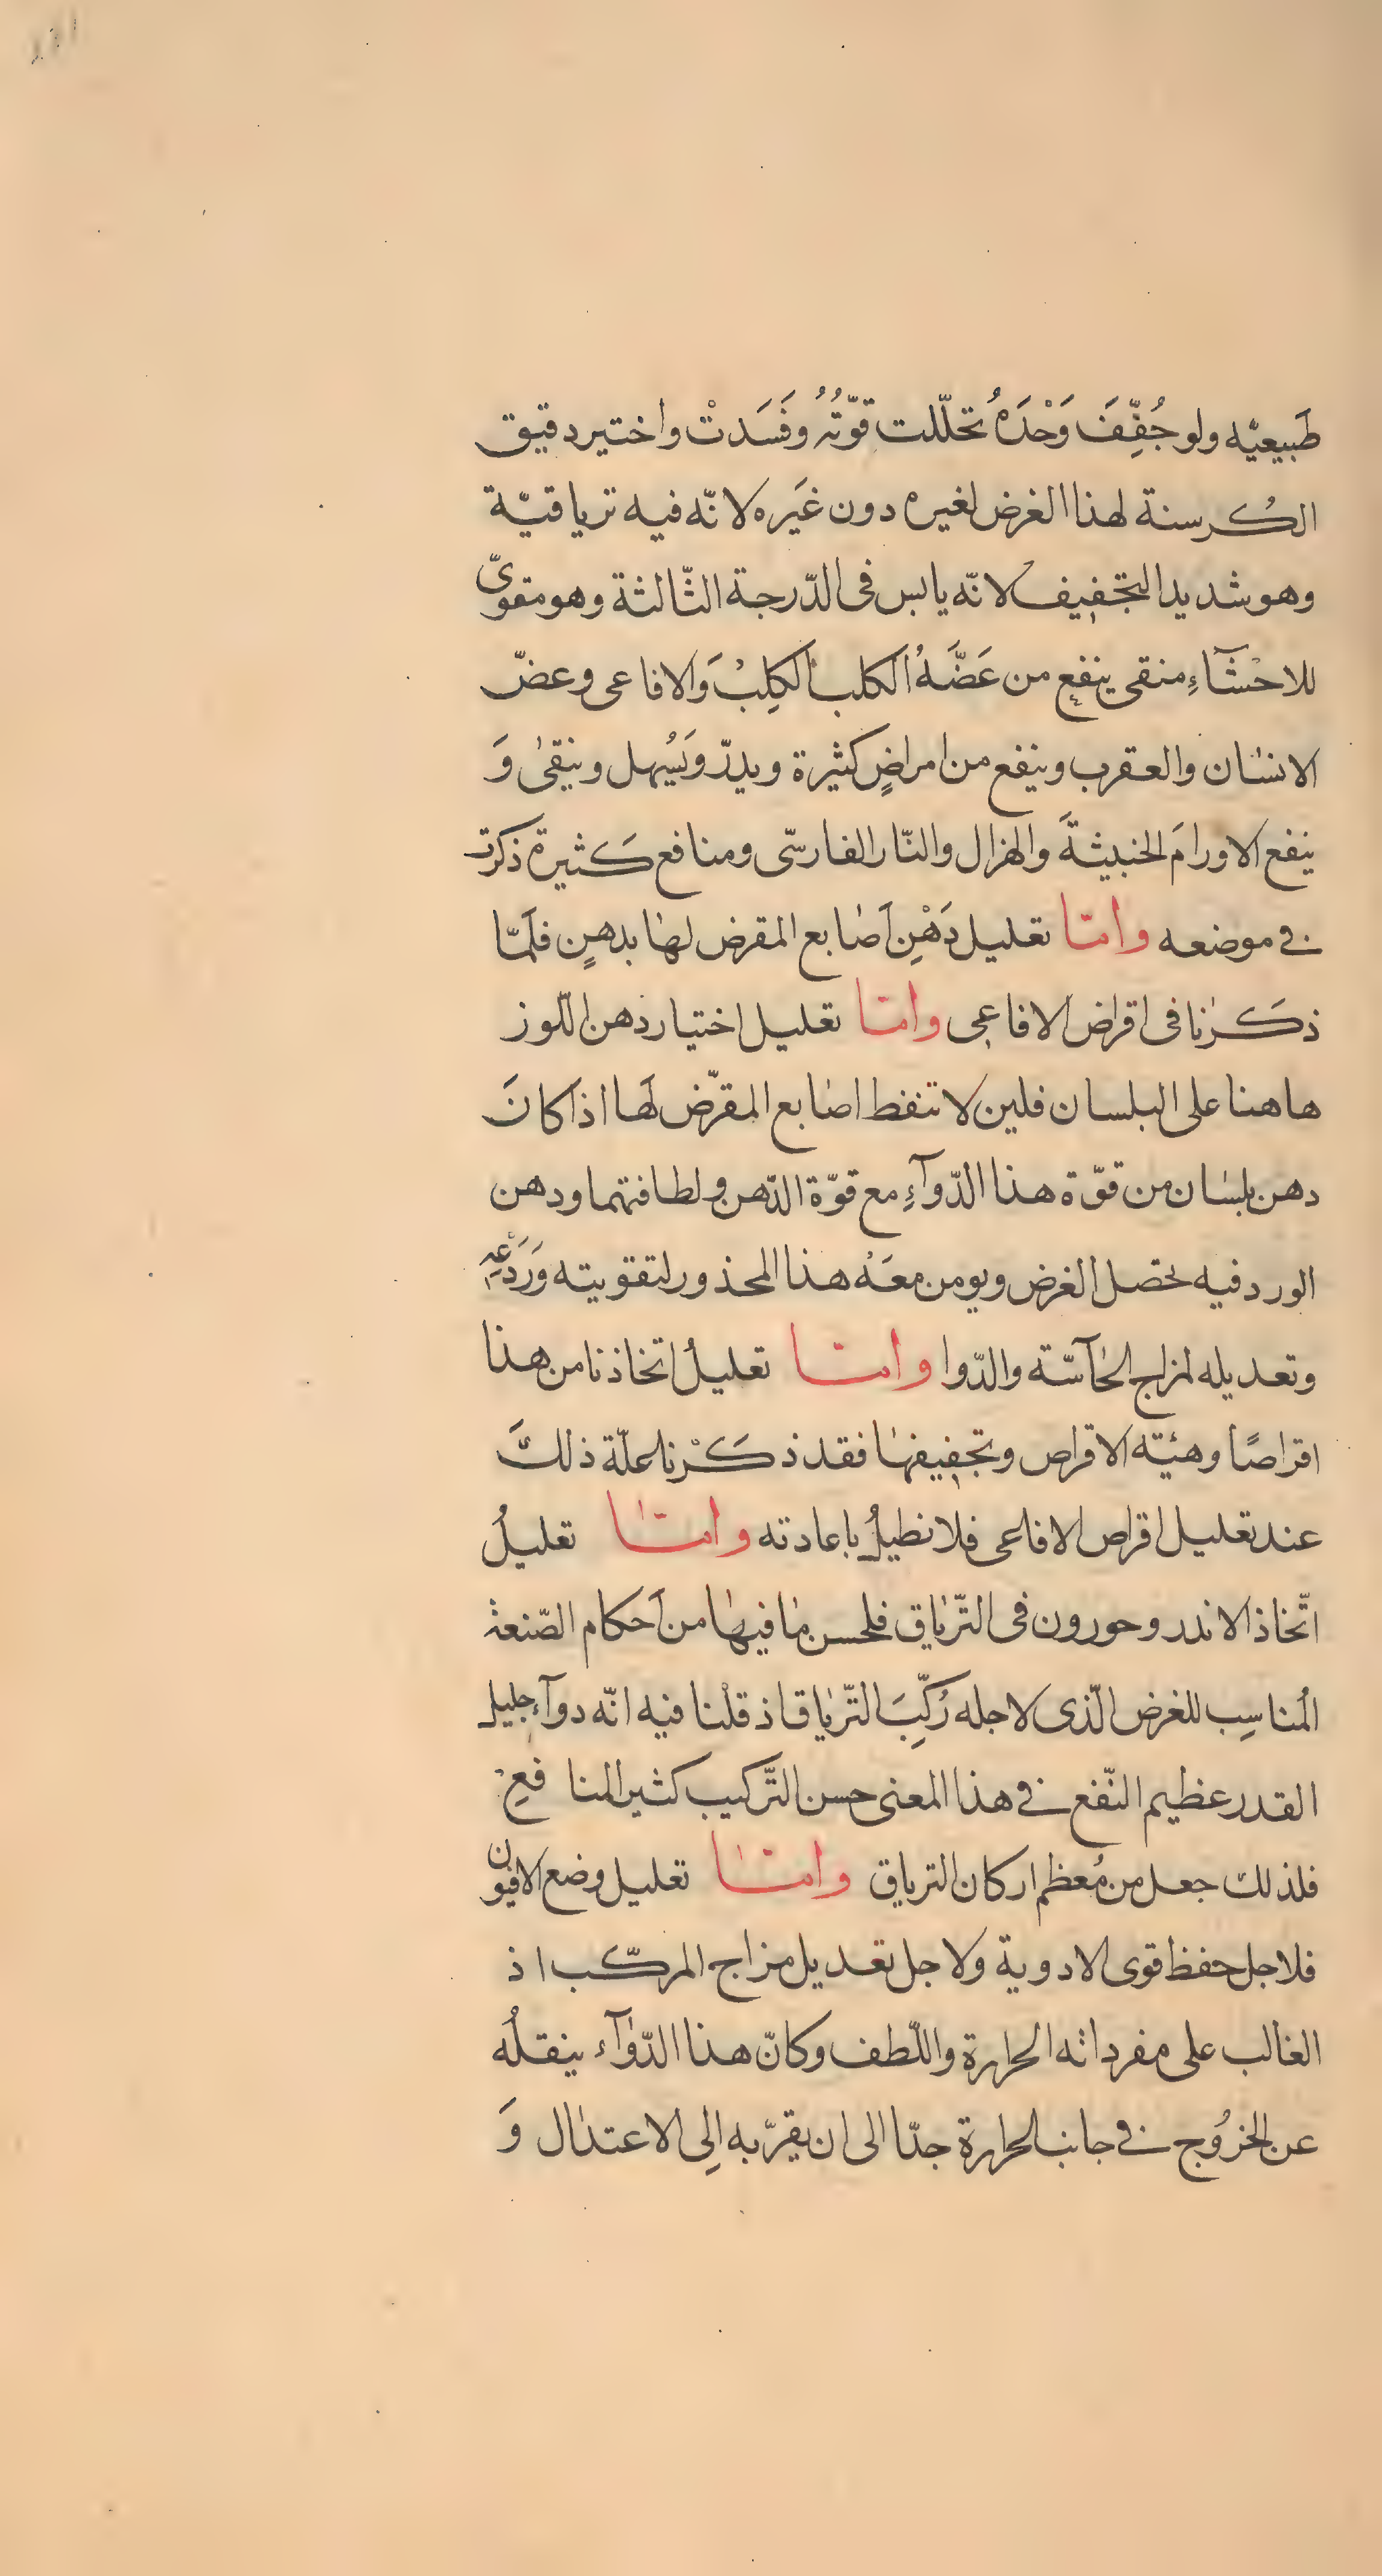 طَبيعيّه ولو جُفِّفَ وَحْدَهُ تحلّلت قوّتُهُ وفَسَدتْ واختير دقيق
الكُرسنة لهذا الغرض لغيره دون غَيَره لانّه فيه ترياقيّة
وهو شديد التجفيف لانّه يابس فى الدّرجة الثّالثة وهو مقوىّ
للاحْشَآءِ منقى ينفع من عَضَّهُ الكلب الكلِبْ وَالافاعى وعضّ
الانسٰان والعقرب وينفع من امراضٍ كثيرة ويدرّ ويَسُهل وينقىٰ وَ
ينفع الاورامَ الخبيثةَ والهزال والنّار الفارسّى ومنافع كَثيرة ذكرت
فى موضعه وامّا تعليل دَهْنِ اَصٰابع المقرض لهٰا بدهنٍ فلَمّا
ذكَرْنٰا فى اقراض الافاعى وامّا تعليل اختيار دهن اللّوز
هاهنا على البلسان فلين لا تنفط اصٰابع المقرّض لَها اذا كانَ
دهن بلسٰان من قوّة هذا الدّوآءِ مع قوّة الدّهن ولطافتهما ودهن
الورد فيه يحصل الغرض ويومن معَهْ هذا المحذور لتقويته وَرَدْعِهِ
وتعديله لمزاج الحٰآسّته والدّوا وامّا تعليلُ اتخاذنا من هذا
اقراصًا وهيئته الاقراص وتجفيفهٰا فقد ذكَرْنا علّة ذلكَ
عند تعليل اقراص الافاعى فلا نطيلُ باعادته وامّا تعليلُ
اتّخاذ الاندروحورون فى التّريٰاق فلحسن مٰا فيهٰا من اَحكام الصّنعة
المُناسِب للغرض الّذى لاجله رُكِّبَ التّريٰاق اذ قلْنا فيه انّه دوآء جليل
القدر عظيم النّفع فى هذا المعنى حسن التّركيب كثير المنافعِ
فلذلك جعل من مُعظم اركان الترياق وامّا تعليل وضع الافيون
فلاجل حفظ قوى الادوية ولاجل تعديل مزاج المركّب اذ
الغالب على مفرداته الحرارة واللّطف وكانّ هذا الدّوٰآء ينقلُه
عن الخرُوج فى جانب الحرارة جدّا الى ان يقرّبه اِلى الاعتدٰال وَ